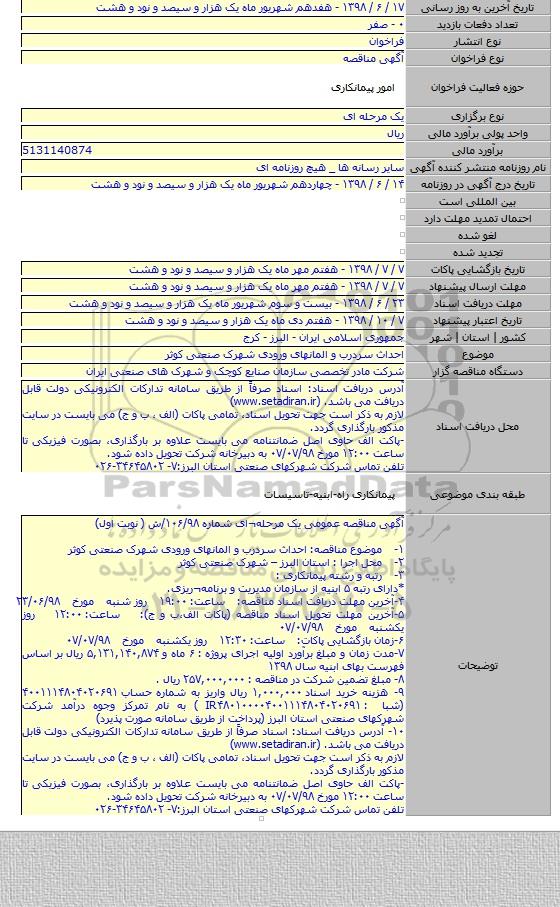 تاریخ آخرین به روز رسانی ۱۷ / ۶ / ۱۳۹۸ - هفدهم شهریور ماه یک هزار و سیصد و نود و هشت
تعداد دفعات بازدید ۰ - صفر
نوع انتشار فراخوان
نوع فراخوان آگهی مناقصه
حوزه فعالیت فراخوان امور پیمانکاری
نوع برگزاری یک مرحله ای
واحد پولی برآورد مالی ریال
برآورد مالی 5131140874
نام روزنامه منتشر کننده آگهی سایر رسانه ها _ هیچ روزنامه ای
تاریخ درج آگهی در روزنامه ۱۴ / ۶ / ۱۳۹۸ - چهاردهم شهریور ماه یک هزار و سیصد و نود و هشت
بین المللی است
احتمال تمدید مهلت دارد
لغو شده
تجدید شده
تاریخ بازگشایی پاکات ۷ / ۷ / ۱۳۹۸ - هفتم مهر ماه یک هزار و سیصد و نود و هشت
مهلت ارسال پیشنهاد ۷ / ۷ / ۱۳۹۸ - هفتم مهر ماه یک هزار و سیصد و نود و هشت
مهلت دریافت اسناد ۲۳ / ۶ / ۱۳۹۸ - بیست و سوم شهریور ماه یک هزار و سیصد و نود و هشت
تاریخ اعتبار پیشنهاد ۷ / ۱۰ / ۱۳۹۸ - هفتم دی ماه یک هزار و سیصد و نود و هشت
کشور | استان | شهر جمهوری اسلامی ایران - البرز - کرج
موضوع احداث سردرب و المانهای ورودی شهرک صنعتی کوثر
دستگاه مناقصه گزار شرکت مادر تخصصی سازمان صنایع کوچک و شهرک های صنعتی ایران
محل دریافت اسناد
آدرس دریافت اسناد: اسناد صرفاً از طریق سامانه تدارکات الکترونیکی دولت قابل
دریافت می باشد. (www.setadiran.ir)
لازم به ذکر است جهت تحویل اسناد، تمامی پاکات (الف ، ب و ج) می بایست در سایت
مذکور بارگذاری گردد.
-پاکت الف حاوی اصل ضمانتنامه می بایست علاوه بر بارگذاری، بصورت فیزیکی تا
ساعت ۱۲:۰۰ مورخ ۰۷/۰۷/۹۸ به دبیرخانه شرکت تحویل داده شود.
تلفن تماس شرکت شهرکهای صنعتی استان البرز:۷- ۳۴۶۴۵۸۰۲-۰۲۶
طبقه بندی موضوعی پیمانکاری راه-ابنیه-تاسیسات
ParsNamadData
پایگاه اطلاع رسانی مناقصه و مزایده
توضیحات
آگهی مناقصه عمومی یک مرحله¬ای شماره ۱۰۶/۹۸/ش ( نوبت اول)
۱- موضوع مناقصه: احداث سردرب و المانهای ورودی شهرک صنعتی کوثر
۲- محل اجرا : استان البرز – شهرک صنعتی کوثر
۳- رتبه و رشته پیمانکاری :
*دارای رتبه ۵ ابنیه از سازمان مدیریت و برنامه¬ریزی.
۴-آخرین مهلت دریافت اسناد مناقصه: ساعت: ۱۹:۰۰ روز شنبه مورخ ۲۳/۰۶/۹۸
۵-آخرین مهلت تحویل اسناد مناقصه (پاکات الف،ب و ج): ساعت: ۱۲:۰۰ روز
یکشنبه مورخ ۰۷/۰۷/۹۸
۶-زمان بازگشایی پاکات: ساعت: ۱۲:۳۰ روز یکشنبه مورخ ۰۷/۰۷/۹۸
۷-مدت زمان و مبلغ برآورد اولیه اجرای پروژه : ۶ ماه و ۵,۱۳۱,۱۴۰,۸۷۴ ریال بر اساس
فهرست بهای ابنیه سال ۱۳۹۸
۸- مبلغ تضمین شرکت در مناقصه : ۲۵۷,۰۰۰,۰۰۰ ریال .
۹- هزینه خرید اسناد ۱,۰۰۰,۰۰۰ ریال واریز به شماره حساب ۴۰۰۱۱۱۴۸۰۴۰۲۰۶۹۱
(شبا : IR۴۸۰۱۰۰۰۰۴۰۰۱۱۱۴۸۰۴۰۲۰۶۹۱ ) به نام تمرکز وجوه درآمد شرکت
شهرکهای صنعتی استان البرز (پرداخت از طریق سامانه صورت پذیرد)
۱۰- آدرس دریافت اسناد: اسناد صرفاً از طریق سامانه تدارکات الکترونیکی دولت قابل
دریافت می باشد. (www.setadiran.ir)
لازم به ذکر است جهت تحویل اسناد، تمامی پاکات (الف ، ب و ج) می بایست در سایت
مذکور بارگذاری گردد.
-پاکت الف حاوی اصل ضمانتنامه می بایست علاوه بر بارگذاری، بصورت فیزیکی تا
ساعت ۱۲:۰۰ مورخ ۰۷/۰۷/۹۸ به دبیرخانه شرکت تحویل داده شود.
تلفن تماس شرکت شهرکهای صنعتی استان البرز:۷- ۳۴۶۴۵۸۰۲-۰۲۶